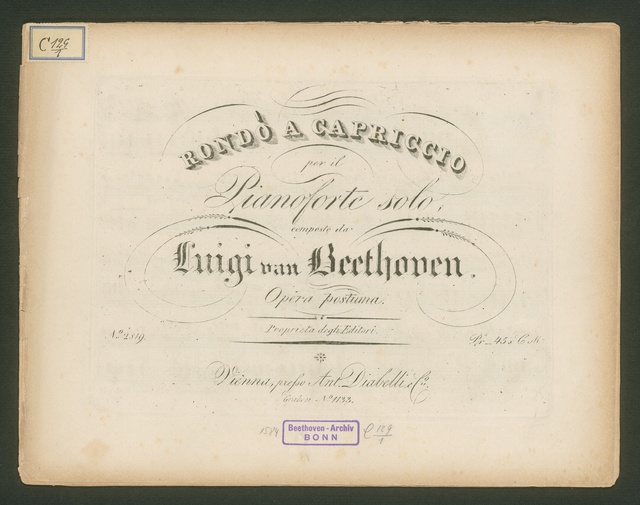 C 129/1
RONDÒ A CAPRICCIO
per il
Pianoforte solo,
composto da
Luigi van Beethoven.
Opera postuma.
Proprietà degli Editori.
No. 2819.
Pr. 45 x C.M.
Vienna, presso Ant. Diabelli e Co.
Graben No. 1133.
Beethoven-Archiv
BONN
C 129/1